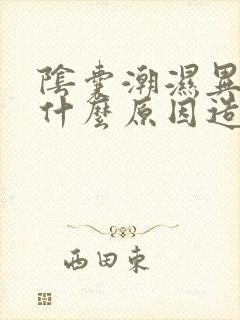 陰囊潮濕異
什麼原因造
西田東